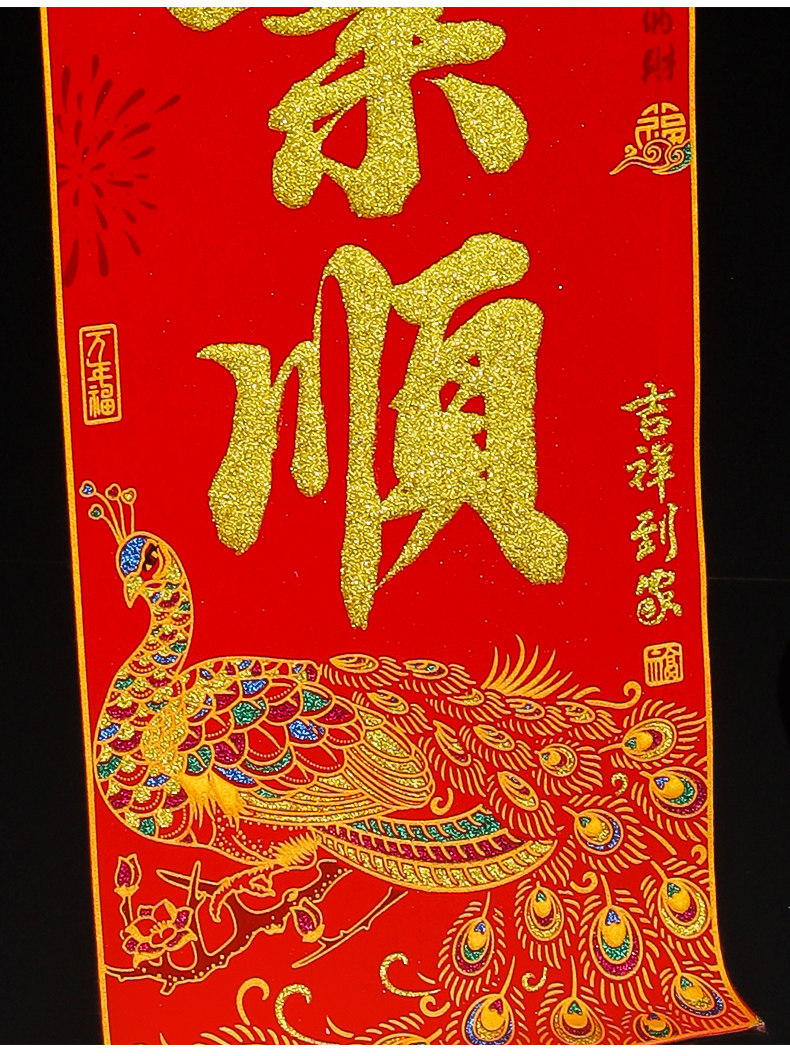 順
福
万年福
吉祥到家
福